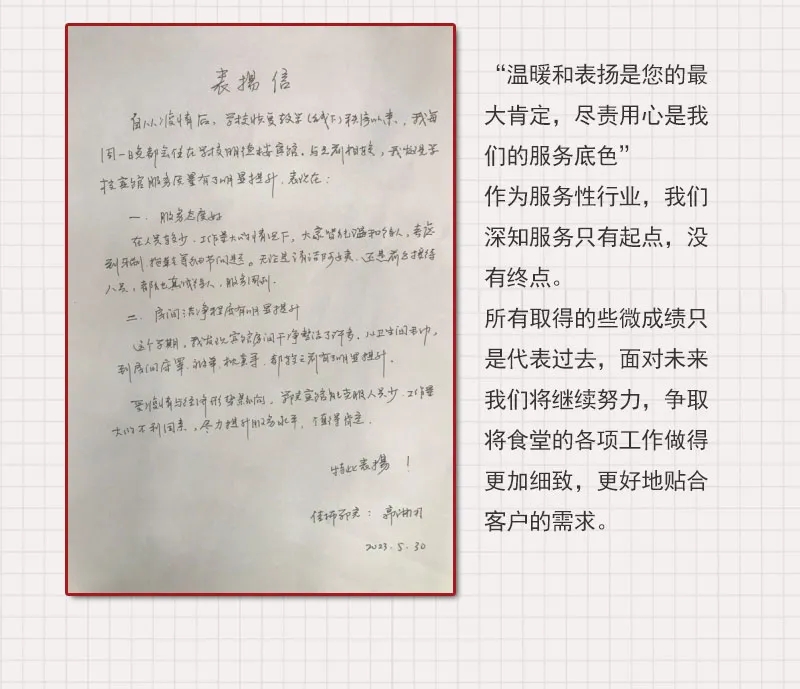 表揚信
自从疫情后，学校恢复教学(线下)秩序以来，我每
周一晚都会住在学校明德楼宾馆。与之前相较，我发现学
校宾馆服务质量有了明显提升，表现在：
一、服务态度好
在人员较少、工作量大的情况下，大家皆能温和待人，考虑
到牙刷、拖鞋等细节问题。无论是清洁阿姨，还是前台接待
人员，都能真诚待人，服务周到。
二、房间洁净程度有明显提升
这个学期，我发现宾馆房间干净整洁了许多，从卫生间毛巾，
到房间床单、被单、枕套等，都较之前有了明显提升。
受疫情与经济形势影响，学校宾馆能克服人员少、工作量
大的不利因素，尽力提升服务水平，值得肯定。
特此表揚！
住师
2023.5.30
“温暖和表扬是您的最
大肯定，尽责用心是我
们的服务底色”
作为服务性行业，我们
深知服务只有起点，没
有终点。
所有取得的些微成绩只
是代表过去，面对未来
我们将继续努力，争取
将食堂的各项工作做得
更加细致，更好地贴合
客户的需求。